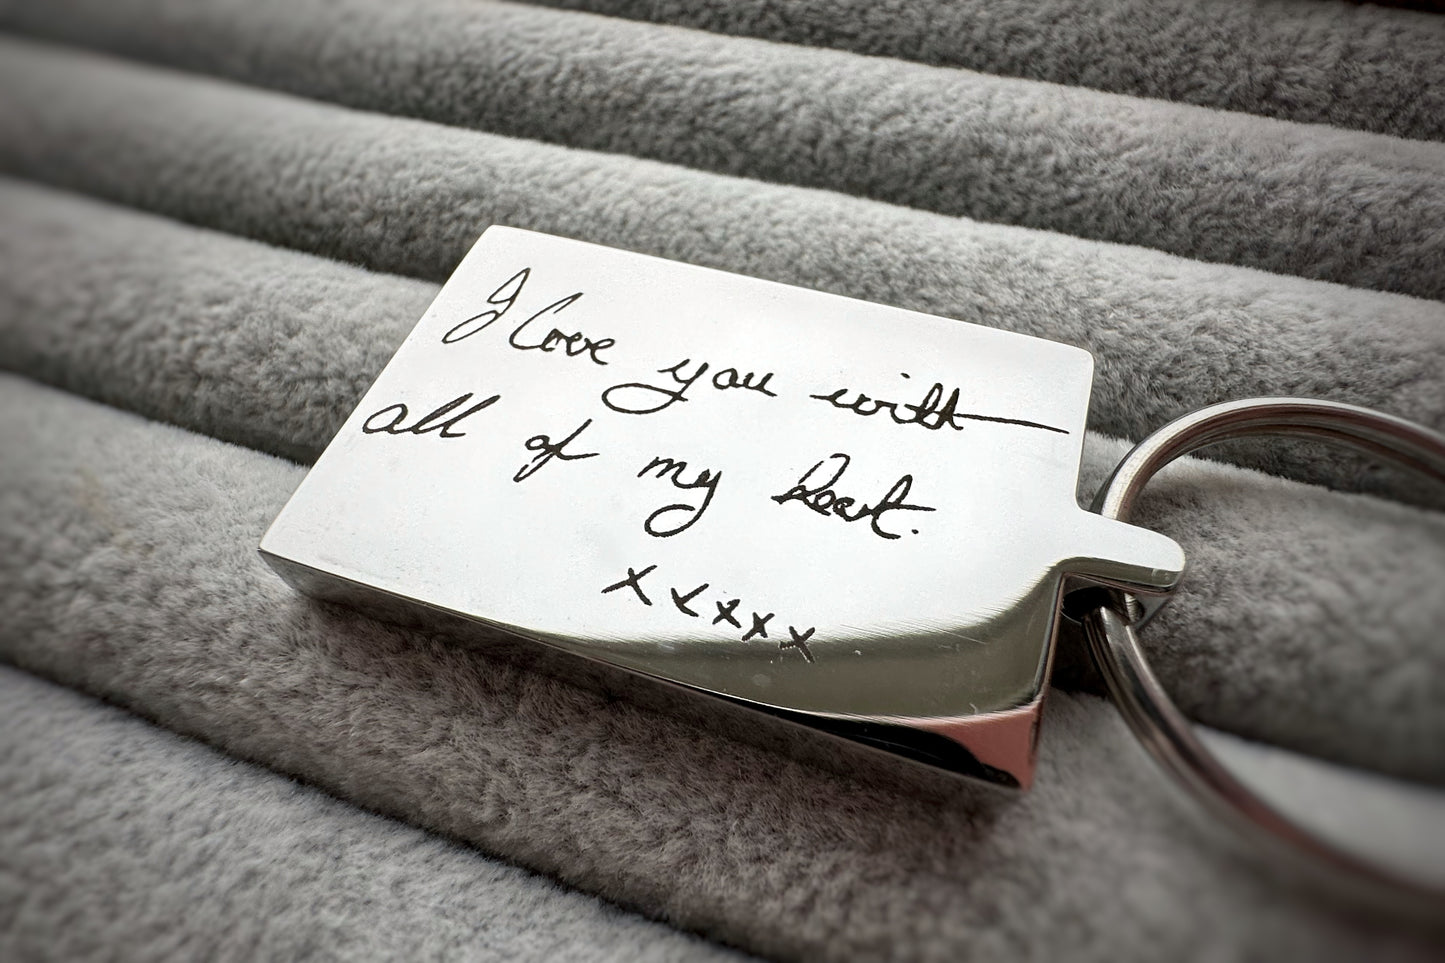 I love you with
all of my heart.
xxxxx